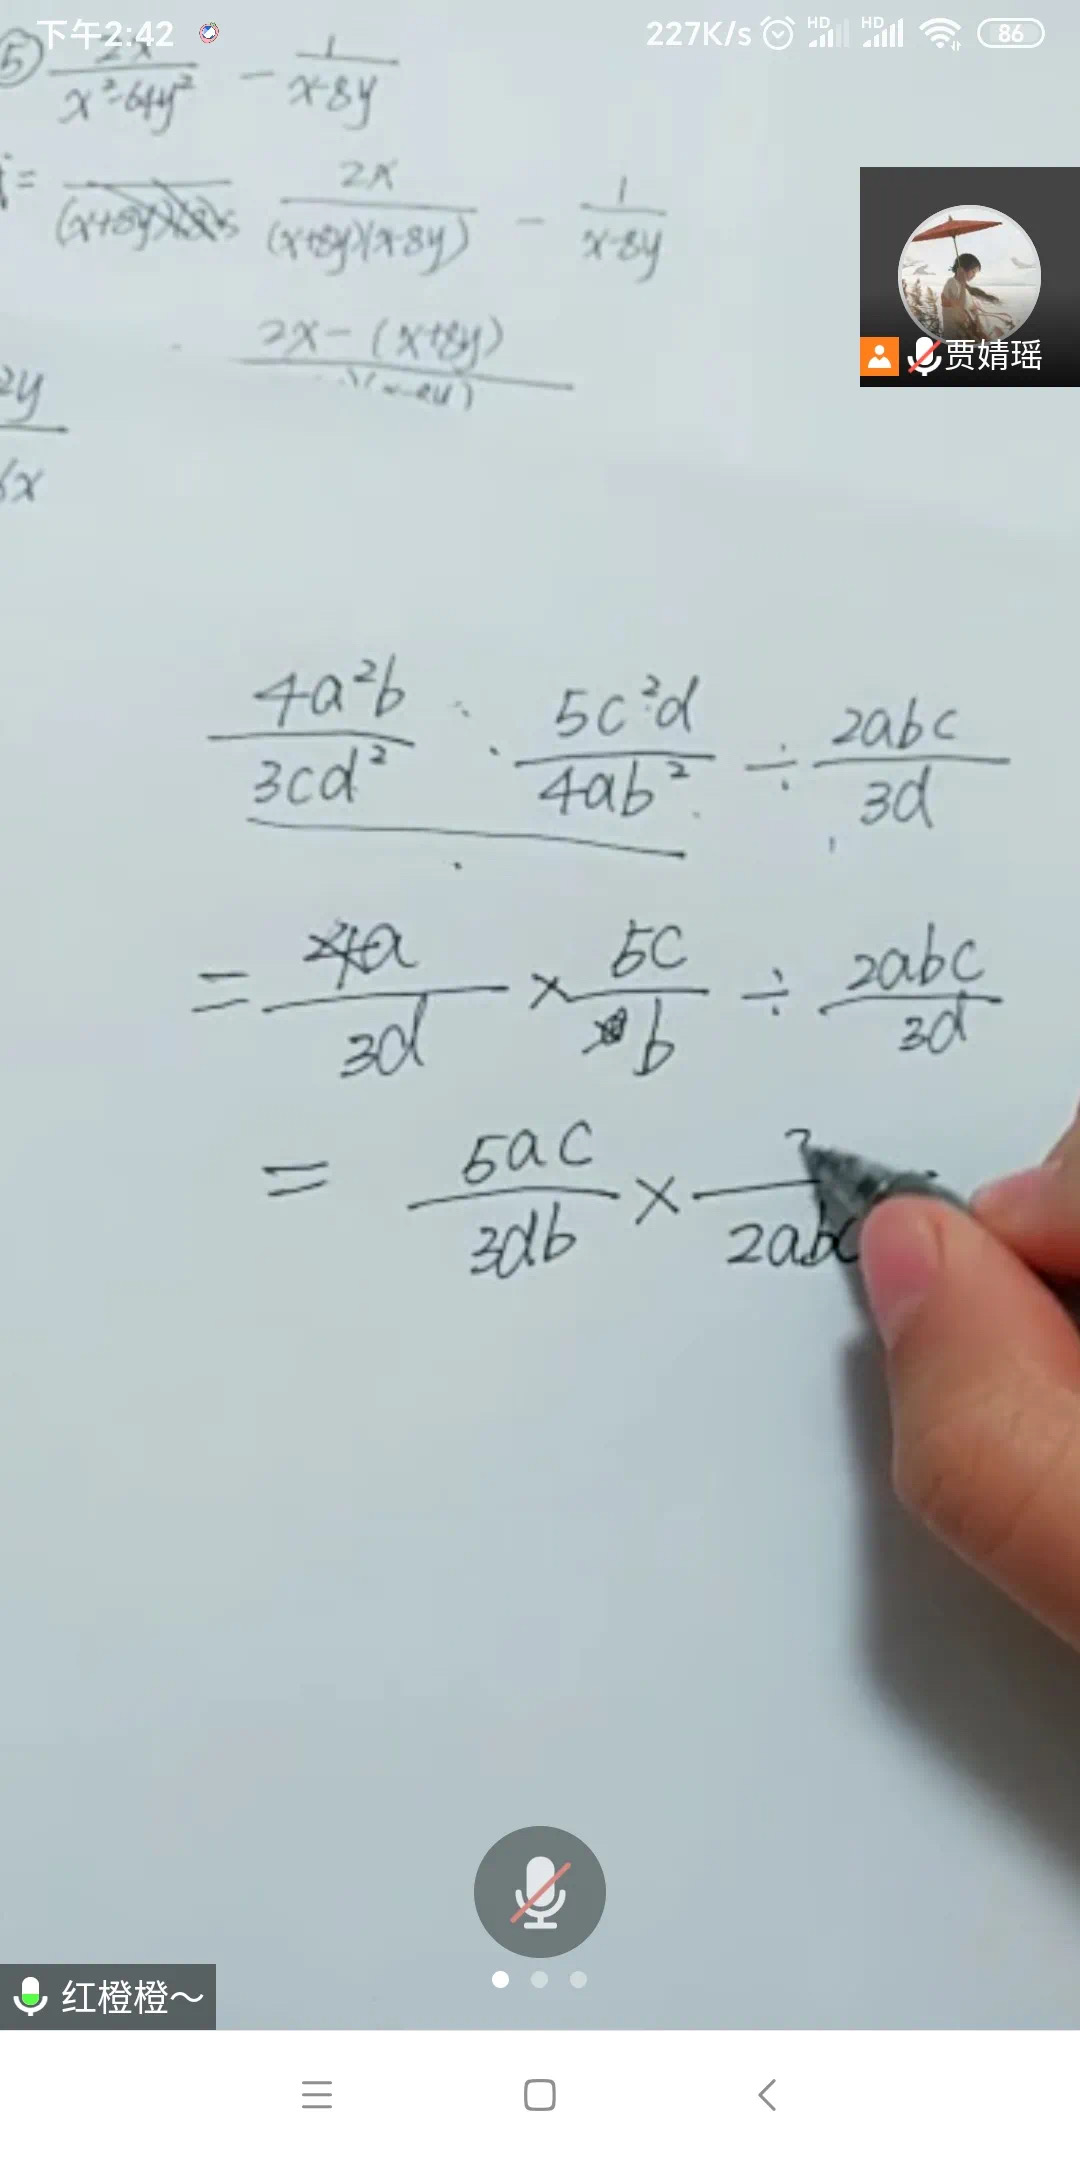 下午2:42 227K/s HD HD 86
⑤ 2x/(x²-64y²) - 1/(x-8y)
= 2x/((x+8y)(x-8y)) - 1/(x-8y)
2x-(x+8y)
2y
6x
贾婧瑶
4a²b/3cd² · 5c²d/4ab² ÷ 2abc/3d
= a/3d × 5c/b ÷ 2abc/3d
= 5ac/3db × /2abc
红橙橙～